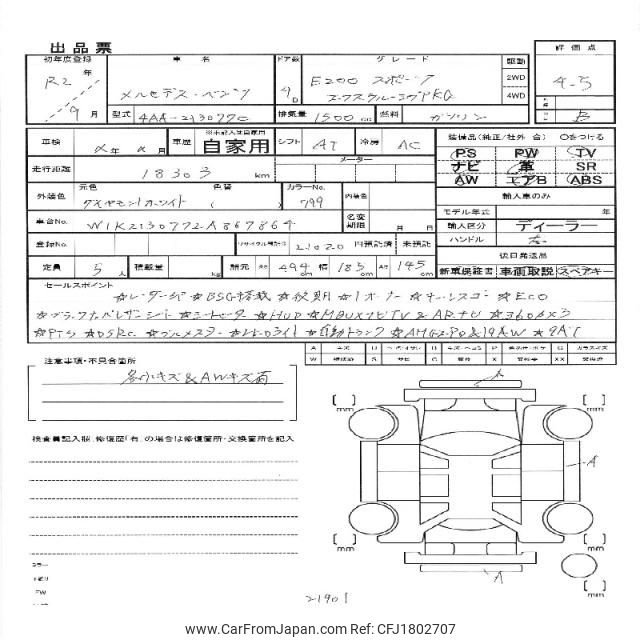 出品票
初年度登録 車名 ドア数 グレード 駆動 評価点
R2年 メルセデス・ベンツ 4D E200 スポーツ 2WD 4.5
9月 エクスクルーシブPKG 4WD
型式 4AA-213077C 排気量 1500 cc 燃料 ガソリン B
車検 年 月 車歴 ※未記入は自家用 自家用 シフト AT 冷房 AC
装備品(純正/社外 含) ○をつける
PS PW TV
ナビ 革 SR
AW エアB ABS
走行距離 18303 km メーター
外装色 元色 ダイヤモンドホワイト 色替 ( ) カラーNo. 799 内装色
輸入車のみ
モデル年式 年
車台No. W1K2130772A867864 名変期限 月 日
輸入車区分 ディーラー
ハンドル 右
登録No. リサイクル預託金 21020 円預託済 未預託
定員 5人 積載量 kg 諸元 長さ 494 cm 幅 185 cm 高さ 145 cm
後日発送品
新車保証書 車輌取説 スペアキー
セールスポイント
☆レーダーSP ☆BSG搭載 ☆後期 ☆1オーナー ☆キーレスゴー ☆ECO
☆ブラックナッパレザーシート ☆シートヒーター ☆HUD ☆MBUXナビTV & ARナビ ☆360°カメラ
☆PTS ☆DSRC ☆ブルメスター ☆LEDライト ☆自動トランク ☆AMGエアロ&19AW ☆9AT
注意事項・不具合箇所
各小キズ&AWキズ有
検査員記入欄、修復歴「有」の場合は修復箇所・交換箇所を記入
A
A
A
[ ] mm [ ] mm
[ ] mm [ ] mm
21901
www.CarFromJapan.com Ref: CFJ1802707